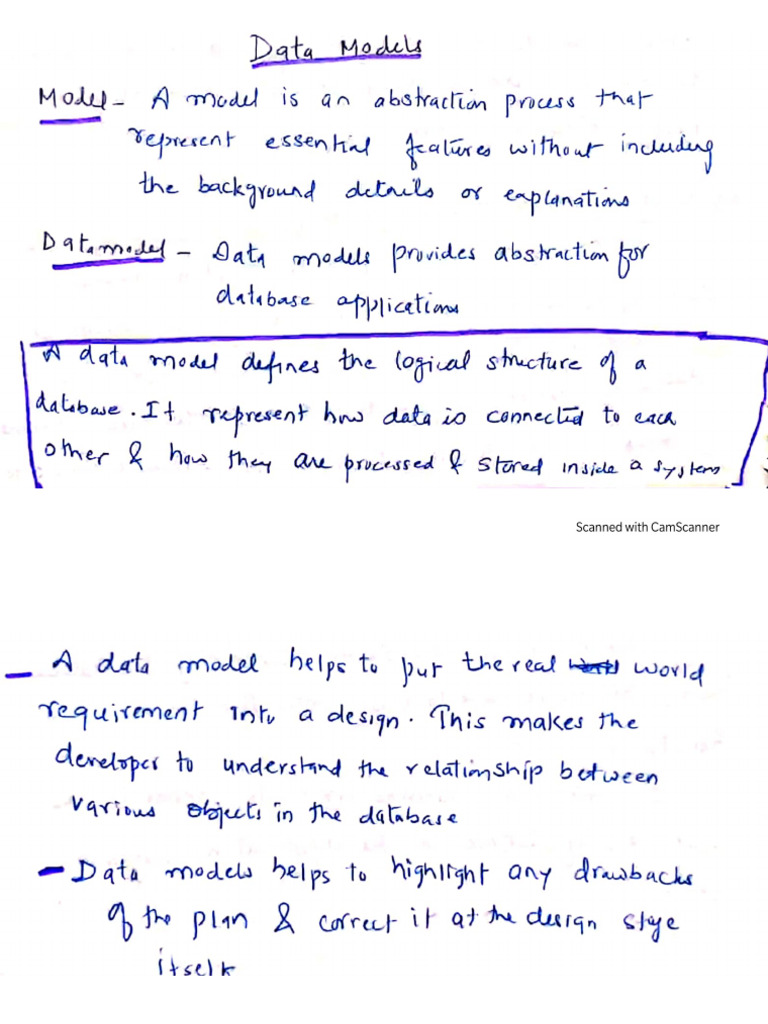 Data Models
Model - A model is an abstraction process that
represent essential features without including
the background details or explanations
Datamodel - Data models provides abstraction for
database applications
A data model defines the logical structure of a
database. It represent how data is connected to each
other & how they are processed & stored inside a system
Scanned with CamScanner
- A data model helps to put the real world
requirement into a design. This makes the
developer to understand the relationship between
various objects in the database
- Data models helps to highlight any drawbacks
of the plan & correct it at the design stge
itself